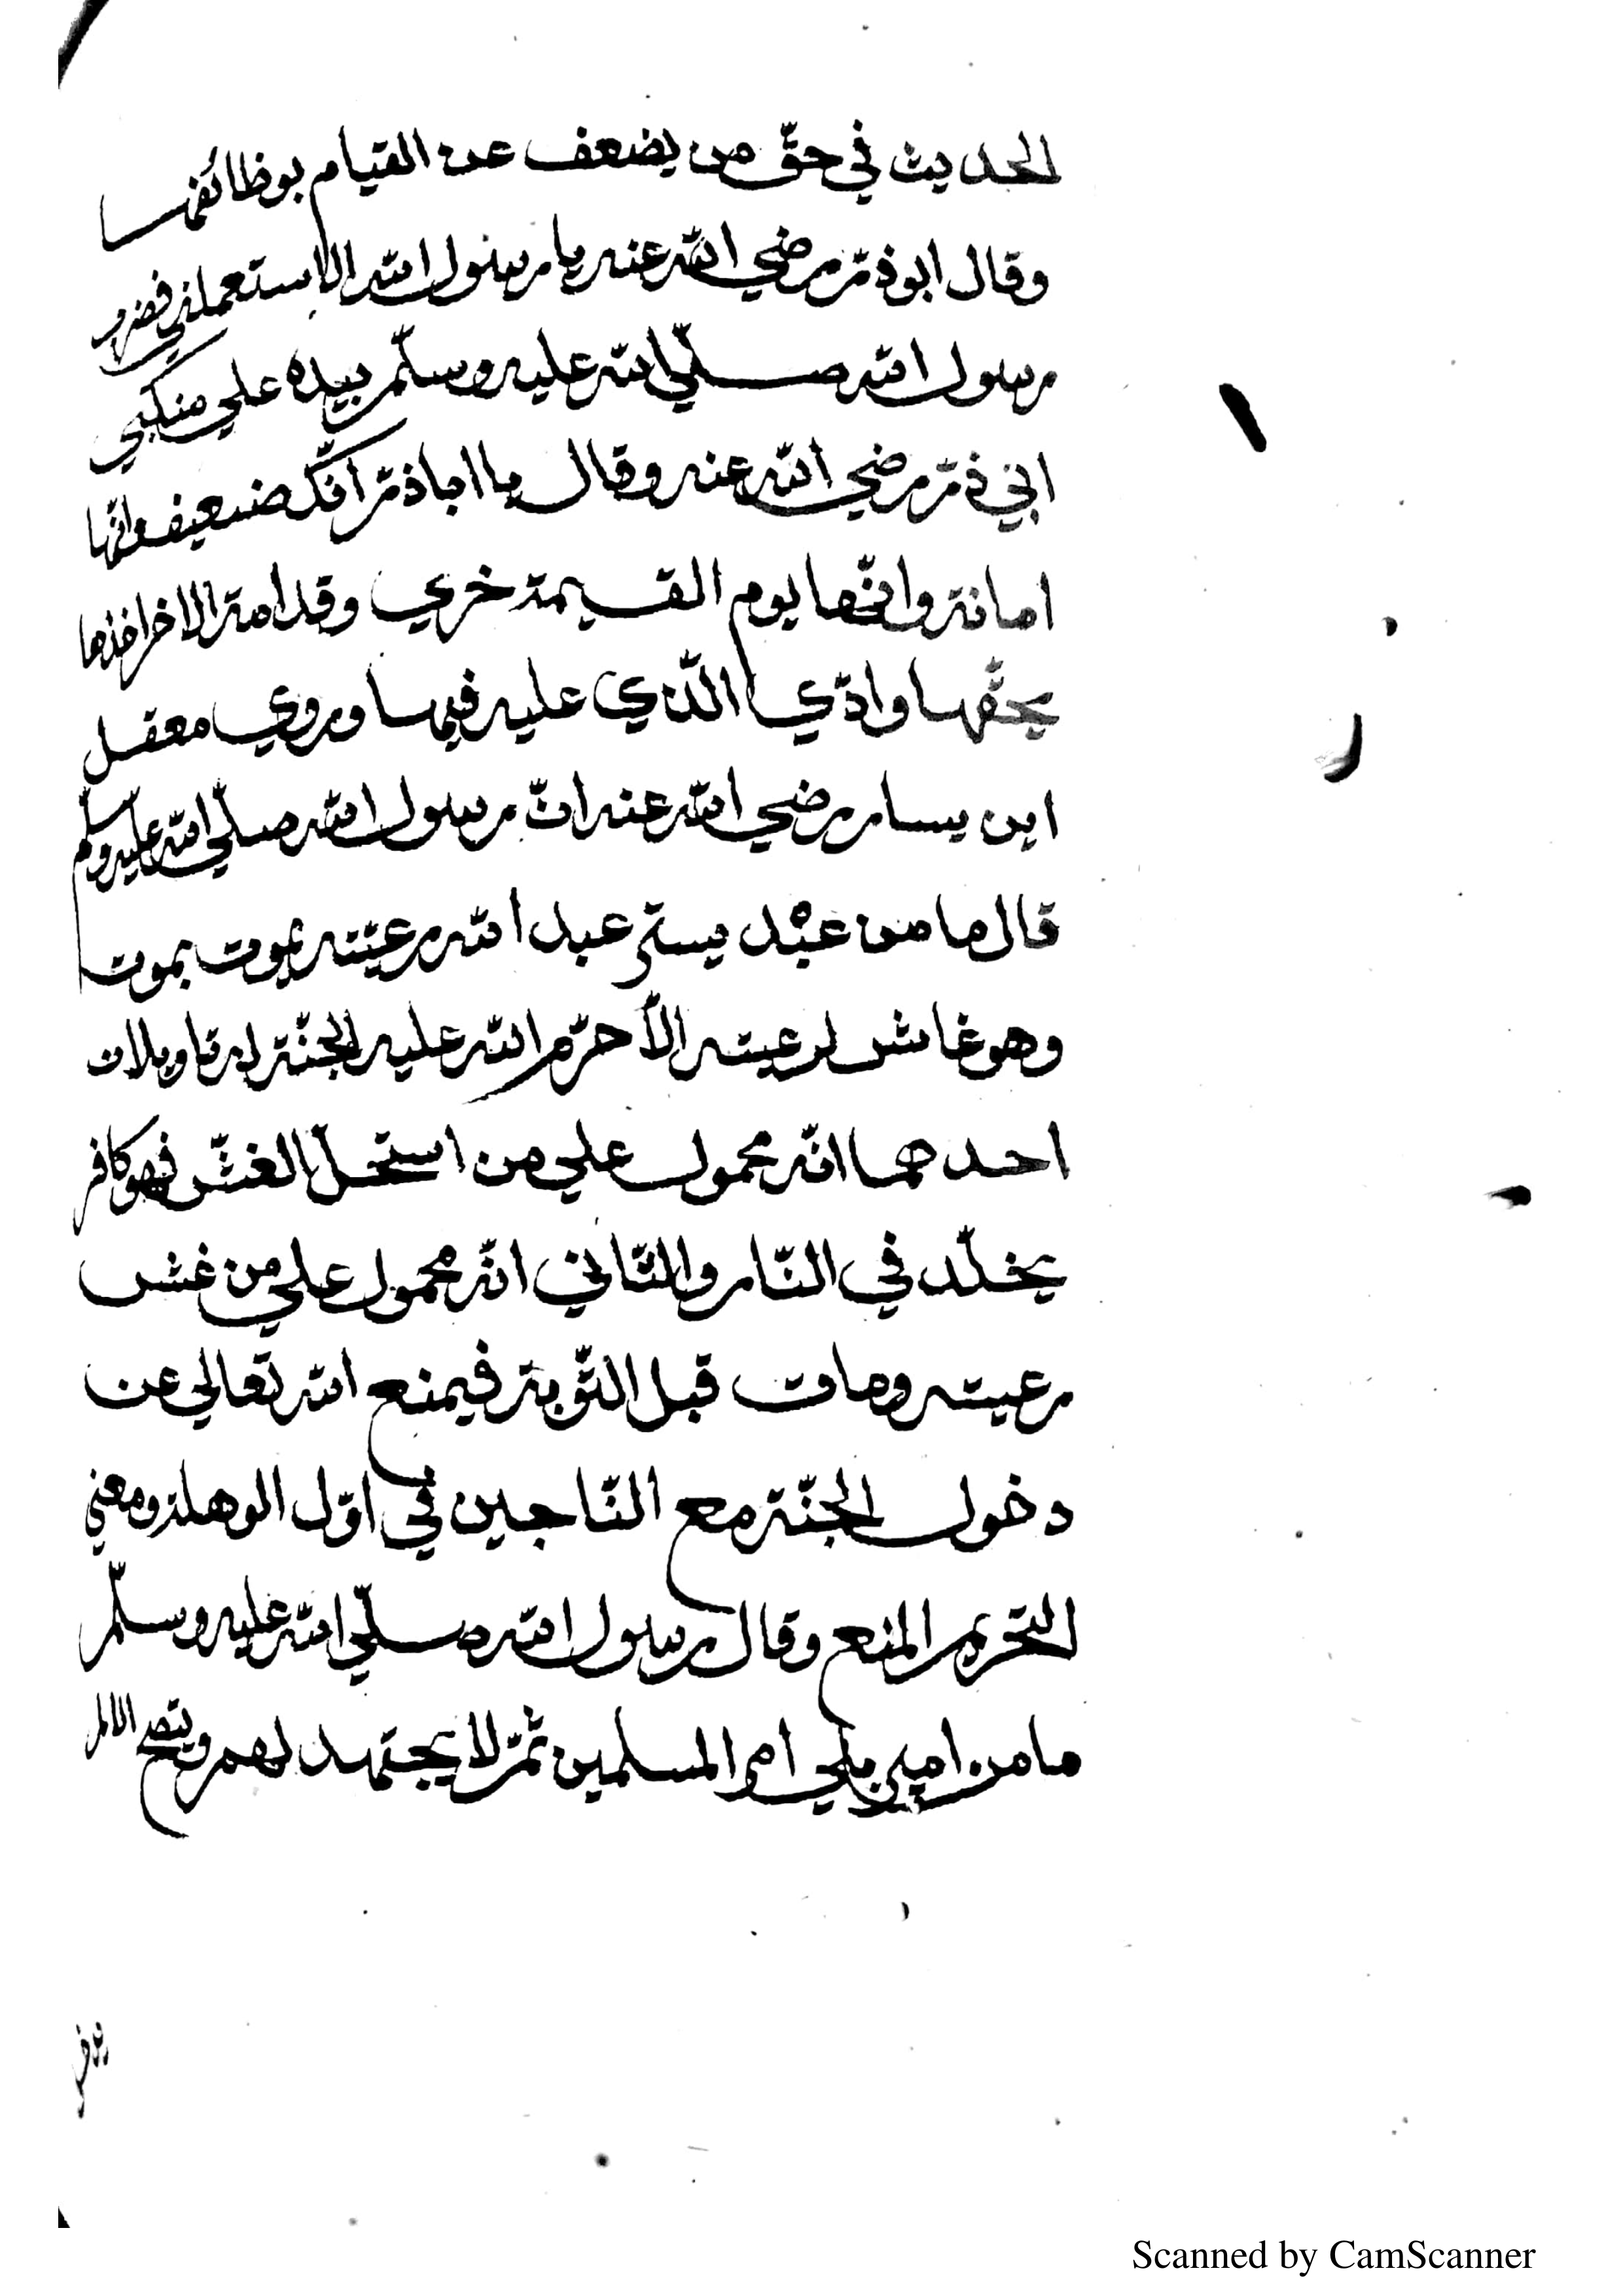 الحديث في حقّ من يضعف عن القيام بوظائفها
وقال ابوذرّ رضي الله عنه يا رسول الله الا ستعملني فضرب
رسول الله صلّي الله عليه وسلّم بيده علي منكبي
ابي ذرّ رضي الله عنه وقال يا اباذرّ انّك ضعيف وانّها
امانة وانّها يوم القيمة خزي وندامة الا من اخذها
بحقّها وادّي الّذي عليه فيها وروي معقل
ابن يسار رضي الله عنه انّ رسول الله صلّي الله عليه وسلم
قال ما من عبْد يسترعي عبد الله رعيّته يموت يموت
وهو غاش لرعيته الاّ حرّم الله عليه الجنّة له تاويلان
احدهما انّه محمول علي من استحلّ الغشّ فهو كافر
يخلّد في النّار والثّاني انّه محمول علي من غش
رعيته ومات قبل التّوبة فيمنع الله تعالي عن
دخول الجنّة مع النّاجين في اوّل الوهلة ومعني
التحريم المنع وقال رسول الله صلّي الله عليه وسلّم
ما من امير يلي امر المسلمين ثمّ لا يجتهد لهم وينصح الا لم
Scanned by CamScanner